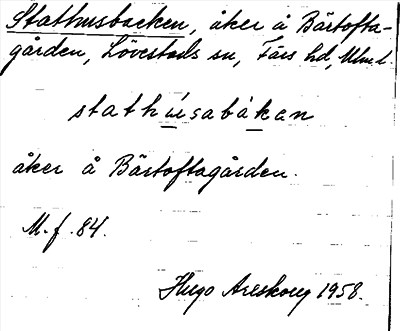 Stathusbacken, åker å Bärtofta-
gården, Lövestads sn, Färs hd, Mlm l.
stathúsabákan
åker å Bärtoftagården.
M. f. 84.
Hugo Areskoug 1958.